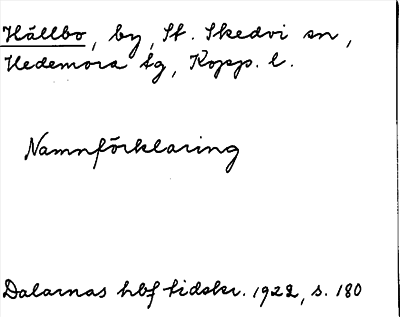 Hällbo, by, St. Skedvi sn,
Hedemora tg, Kopp. l.
Namnförklaring
Dalarnas hbf tidskr. 1922, s. 180